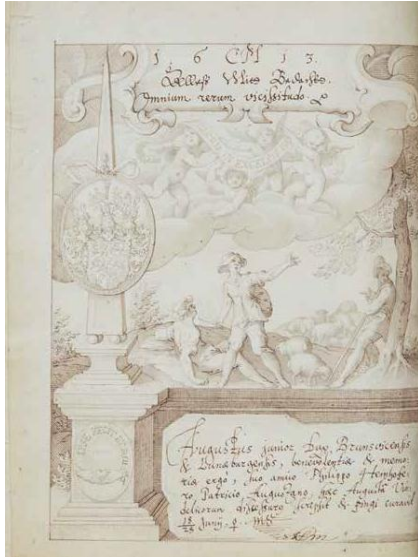 1 6 13.
Omnium rerum vicissitudo
Augustus junior Dux Brunsvicensis
& Lunæburgensis, benevolentiæ & memo-
riæ ergo, suo amico Philippo Heinhofe-
ro, Patricio Augustano, hæc Augustæ Vin-
delicorum discessurus scripsit & pingi curavit
Junij